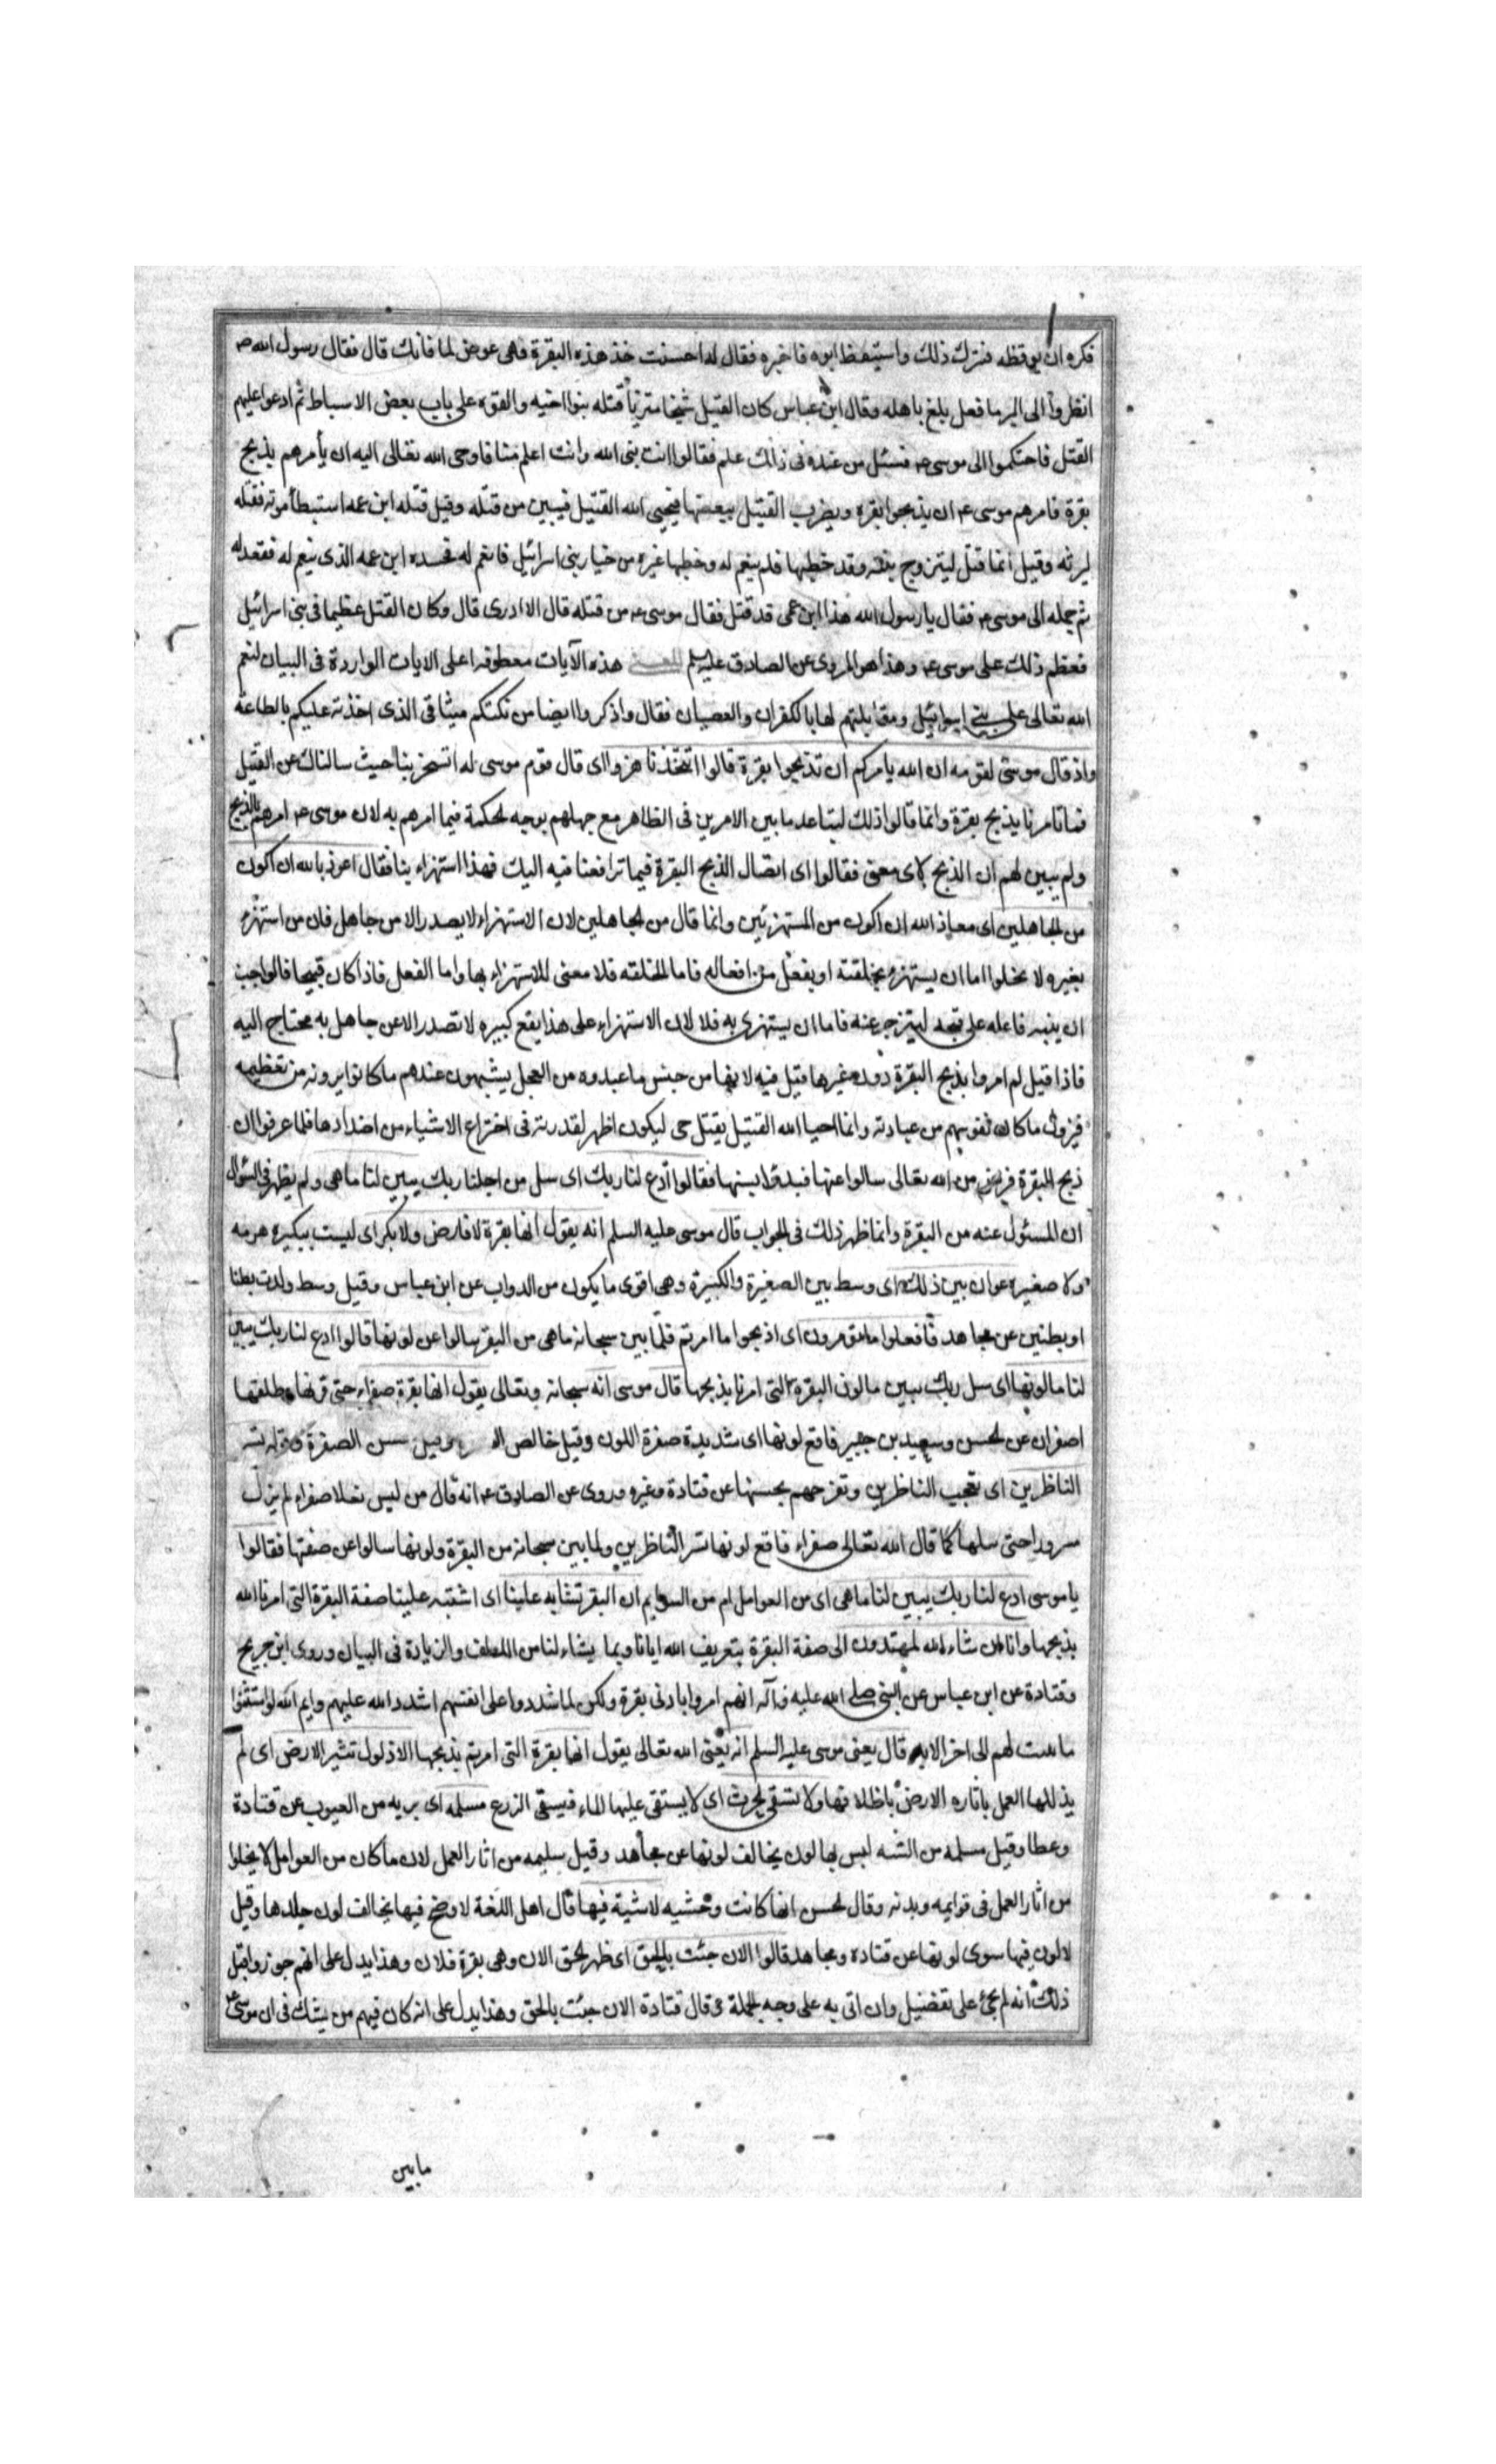 فكره ان يوقظه فترك ذلك واستيقظ ابوه فاخبره فقال له احسنت خذ هذه البقرة فهى عوض لما فاتك قال فقال رسول الله ص
انظروا الى البر ما فعل يلغ باهله وقال ابن عباس كان القتيل شيخا مثريا قتله بنوا اخيه والقوه على باب بعض الاسباط ثم ادعوا عليهم
القتل فاحتكموا الى موسى ع فسئل من عنده فى ذلك علم فقالوا انت نبى الله وانت اعلم منا فاوحى الله تعالى اليه ان يأمرهم بذبح
بقرة فامرهم موسى ع ان يذبحوا بقرة ويضرب القتيل ببعضها فيحيى الله القتيل فيبين من قتله وقيل قتله ابن عمه استبطأ موته فقتله
ليرثه وقيل انما قتل ليتزوج بنته وقد خطبها فلم ينعم له وخطبها غيره من خيار بنى اسرائيل فانعم له فحسده ابن عمه الذى لم ينعم له فقعد له
ثم حمله الى موسى ع فقال يا رسول الله هذا ابن عمى قد قتل فقال موسى ع من قتله قال لا ادرى قال وكان القتل عظيما فى بنى اسرائيل
فعظم ذلك على موسى ع وهذا هو المروى عن الصادق عليه السلم هذه الآيات معطوفة على الايات الواردة فى البيان لنعم
الله تعالى على بنى اسرائيل ومقابلتهم لها بالكفران والعصيان فقال واذكروا ايضا من نكثكم ميثاقى الذى اخذته عليكم بالطاعة
واذ قال موسى لقومه ان الله يامركم ان تذبحوا بقرة قالوا اتتخذنا هزوا اى قال قوم موسى له اتسخر بنا حيث سالناك عن القتيل
فتامرنا بذبح بقرة وانما قالوا ذلك لتباعد ما بين الامرين فى الظاهر مع جهلهم بوجه الحكمة فيما امرهم به لان موسى ع امرهم بالذبح
ولم يبين لهم ان الذبح لاى معنى فقالوا اى اتصال لذبح البقرة فيما ترافعنا فيه اليك فهذا استهزاء بنا فقال اعوذ بالله ان اكون
من الجاهلين اى معاذ الله ان اكون من المستهزئين وانما قال من الجاهلين لان الاستهزاء لا يصدر الا من جاهل فان من استهزء
بغيره لا يخلوا اما ان يستهزء بخلقته او بفعل من افعاله فاما الخلقة فلا معنى للاستهزاء بها واما الفعل فاذا كان قبيحا فالواجب
ان ينبه فاعله على قبحه لينزجر عنه فاما ان يستهزئ به فلا لان الاستهزاء على هذا يقع كبيرة لا تصدر الا عن جاهل به محتاج اليه
فاذا قيل لم امروا بذبح البقرة دون غيرها قيل فيه لانها من جنس ما عبدوه من العجل يشبهون عندهم ما كانوا يرونه من تعظيمه
فيزول ما كان فى نفوسهم من عبادته وانما احيا الله القتيل بقتل حى ليكون اظهر لقدرته فى اختراع الاشياء من اضدادها فلما عرفوا ان
ذبح البقرة فريضة من الله تعالى سالوا عنها فقالوا ادع لنا ربك اى سل من اجلنا ربك يبين لنا ما هى ولم يظهر فى السؤال
ان المسئول عنه سن البقرة وانما ظهر ذلك فى الجواب قال موسى عليه السلم انه يقول انها بقرة لا فارض ولا بكر اى ليست بكبيرة هرمه
ولا صغيرة عوان بين ذلك اى وسط بين الصغيرة والكبيرة وهى اقوى ما يكون من الدواب عن ابن عباس وقيل وسط ولدت بطنا
او بطنين عن مجاهد فافعلوا ما تؤمرون اى اذبحوا ما امرتم فلما بين سبحانه ما هى من البقر سالوا عن لونها قالوا ادع لنا ربك يبين
لنا ما لونها اى سل ربك يبين ما لون البقرة التى امرنا بذبحها قال موسى انه سبحانه وتعالى يقول انها بقرة صفراء حتى قرنها وظلفها
اصفران عن الحسن وسعيد بن جبير فاقع لونها اى شديدة صفرة اللون وقيل خالص الصفرة وقيل حسن الصفرة وقوله تسر
الناظرين اى تعجب الناظرين وتفرحهم بحسنها عن قتادة وغيره وروى عن الصادق ع انه قال من لبس نعلا صفراء لم يزل
مسرورا حتى يبليها كما قال الله تعالى صفراء فاقع لونها تسر الناظرين ولما بين سبحانه سن البقرة ولونها سالوا عن صفتها فقالوا
يا موسى ادع لنا ربك يبين لنا ما هى اى من العوامل ام من السوايم ان البقر تشابه علينا اى اشتبه علينا صفة البقرة التى امرنا الله
بذبحها وانا ان شاء الله لمهتدون الى صفة البقرة بتعريف الله ايانا وبما يشاء لنا من اللطف والزيادة فى البيان وروى ابن جريح
وقتادة عن ابن عباس عن النبى صلى الله عليه وآله انهم امروا بادنى بقرة ولكن لما شددوا على انفسهم شدد الله عليهم وايم الله لو لم يستثنوا
ما بينت لهم الى اخر الابد قال يعنى موسى عليه السلم انه يعنى الله تعالى يقول انها بقرة التى امرتم بذبحها لا ذلول تثير الارض اى لم
يذللها العمل باثاره الارض باظلافها ولا تسقى الحرث اى لا يستقى عليها الماء فيسقى الزرع مسلمه اى بريه من العيوب عن قتادة
وعطا وقيل مسلمه من الشيه ليس بها لون يخالف لونها عن مجاهد وقيل سليمه من اثار العمل لان ما كان من العوامل لا يخلوا
من اثار العمل فى قوايمه وبدنه وقال الحسن انها كانت وحشيه لا شية فيها قال اهل اللغة لا وضح فيها يخالف لون جلدها وقيل
لا لون فيها سوى لونها عن قتادة ومجاهد قالوا الان جئت بالحق اى ظهر الحق الان وهى بقرة فلان وهذا يدل على انهم جوزوا قبل
ذلك انه لم يجئ على تفصيل وان اتى به على وجه الجملة وقال قتادة الان جئت بالحق وهذا يدل على انه كان فيهم من يشك فى ان موسى ع
ما بين